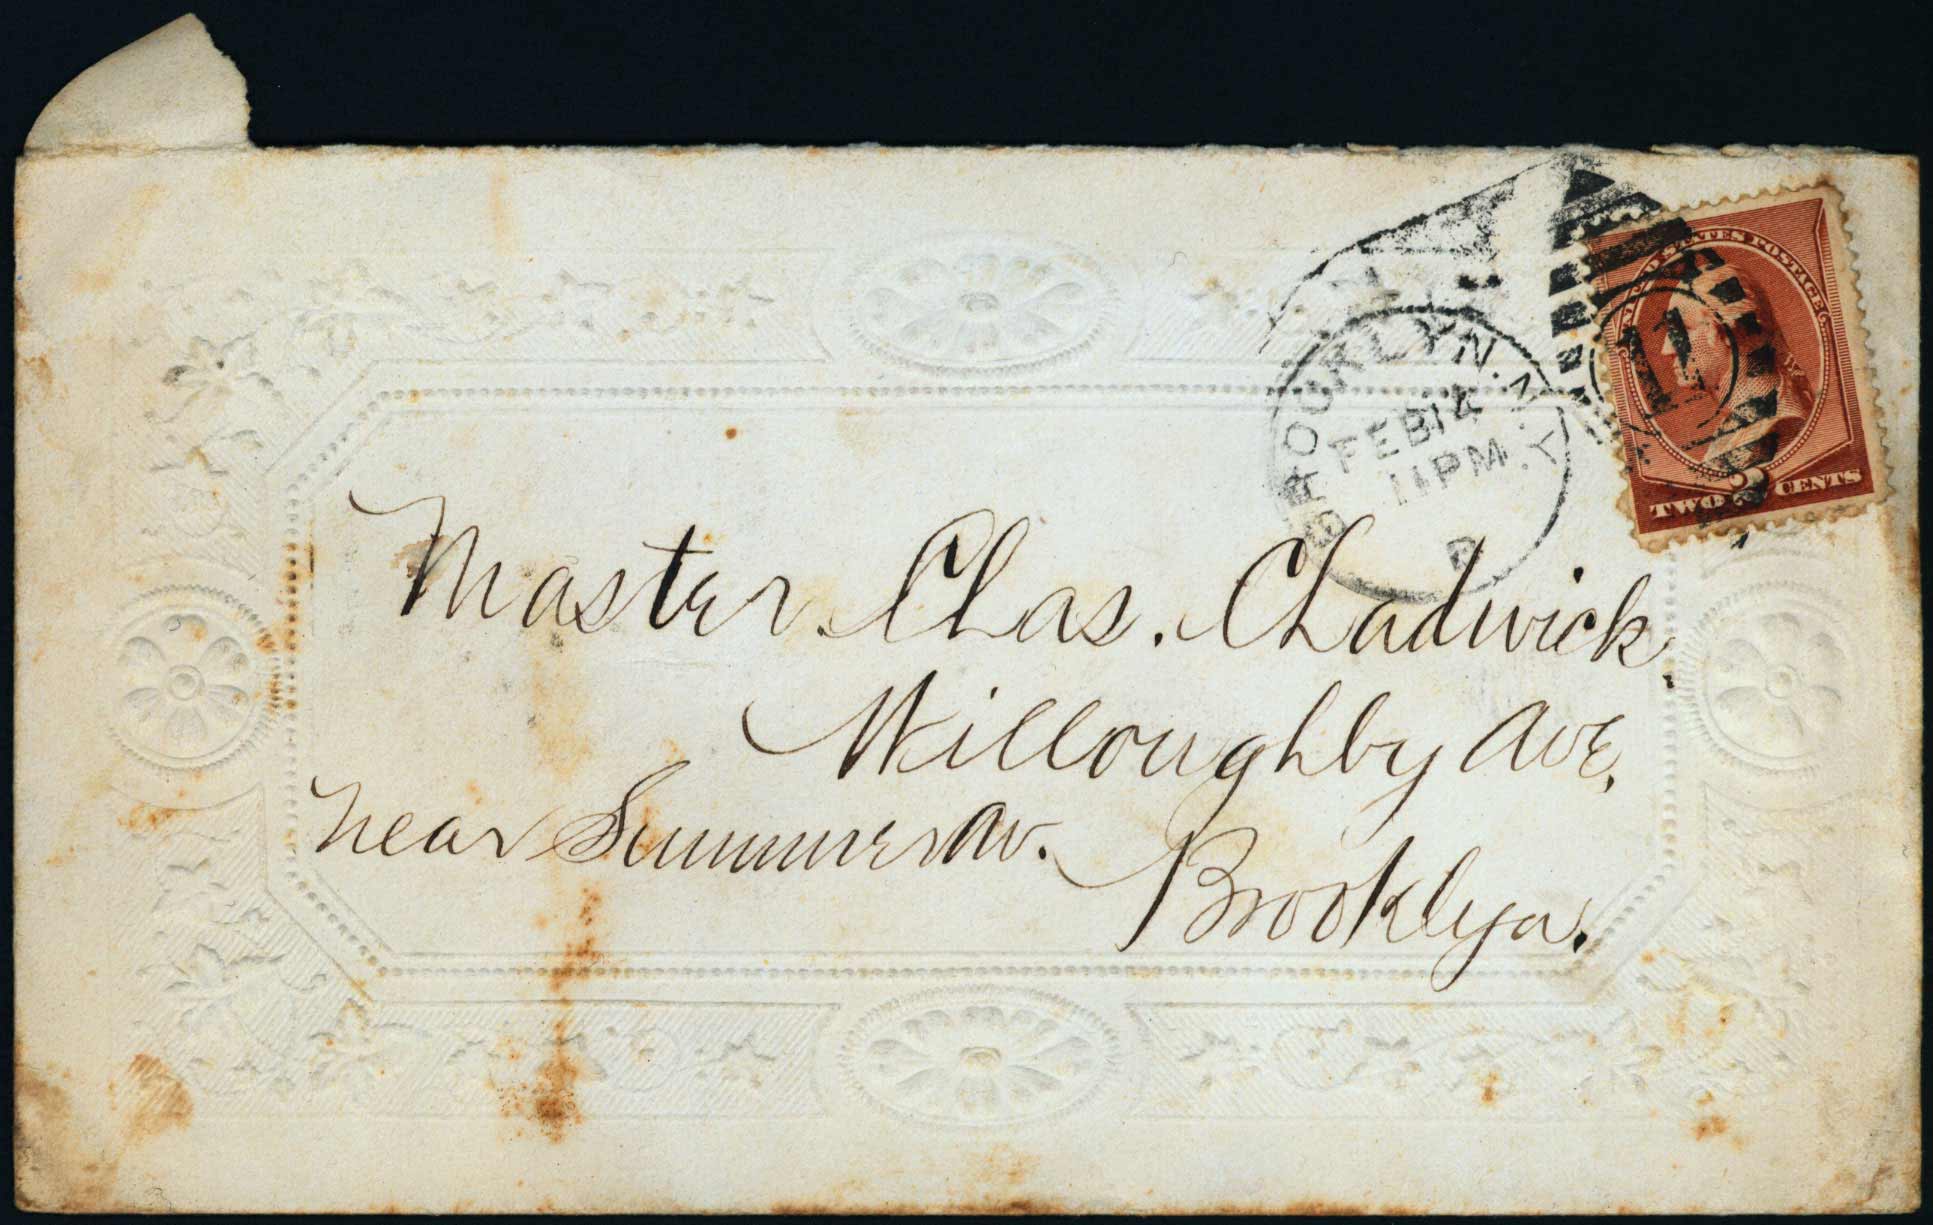 UNITED STATES POSTAGE
TWO 2 CENTS
11
BROOKLYN. N.Y.
FEB 14
11 PM
Master. Chas. Chadwick.
Willoughby Ave,
near Sumner Av.
Brooklyn.